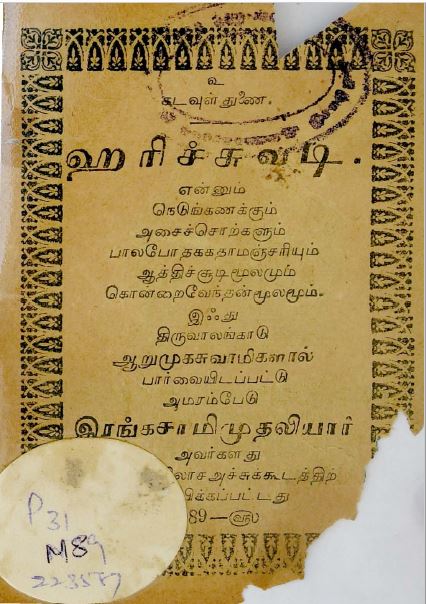 உ
கடவுள் துணை.
ஹரிச்சுவடி.
என்னும்
நெடுங்கணக்கும்
அசைச்சொற்களும்
பாலபோதககதாமஞ்சரியும்
ஆத்திச்சூடிமூலமும்
கொன்றைவேந்தன்மூலமும்.
இஃது
திருவாலங்காடு
ஆறுமுகசுவாமிகளால்
பார்வையிடப்பட்டு
அமரம்பேடு
இரங்கசாமிமுதலியார்
அவர்களது
லாசஅச்சுக்கூடத்திற்
பிக்கப்பட்டது
89 —
P31
M89
223577